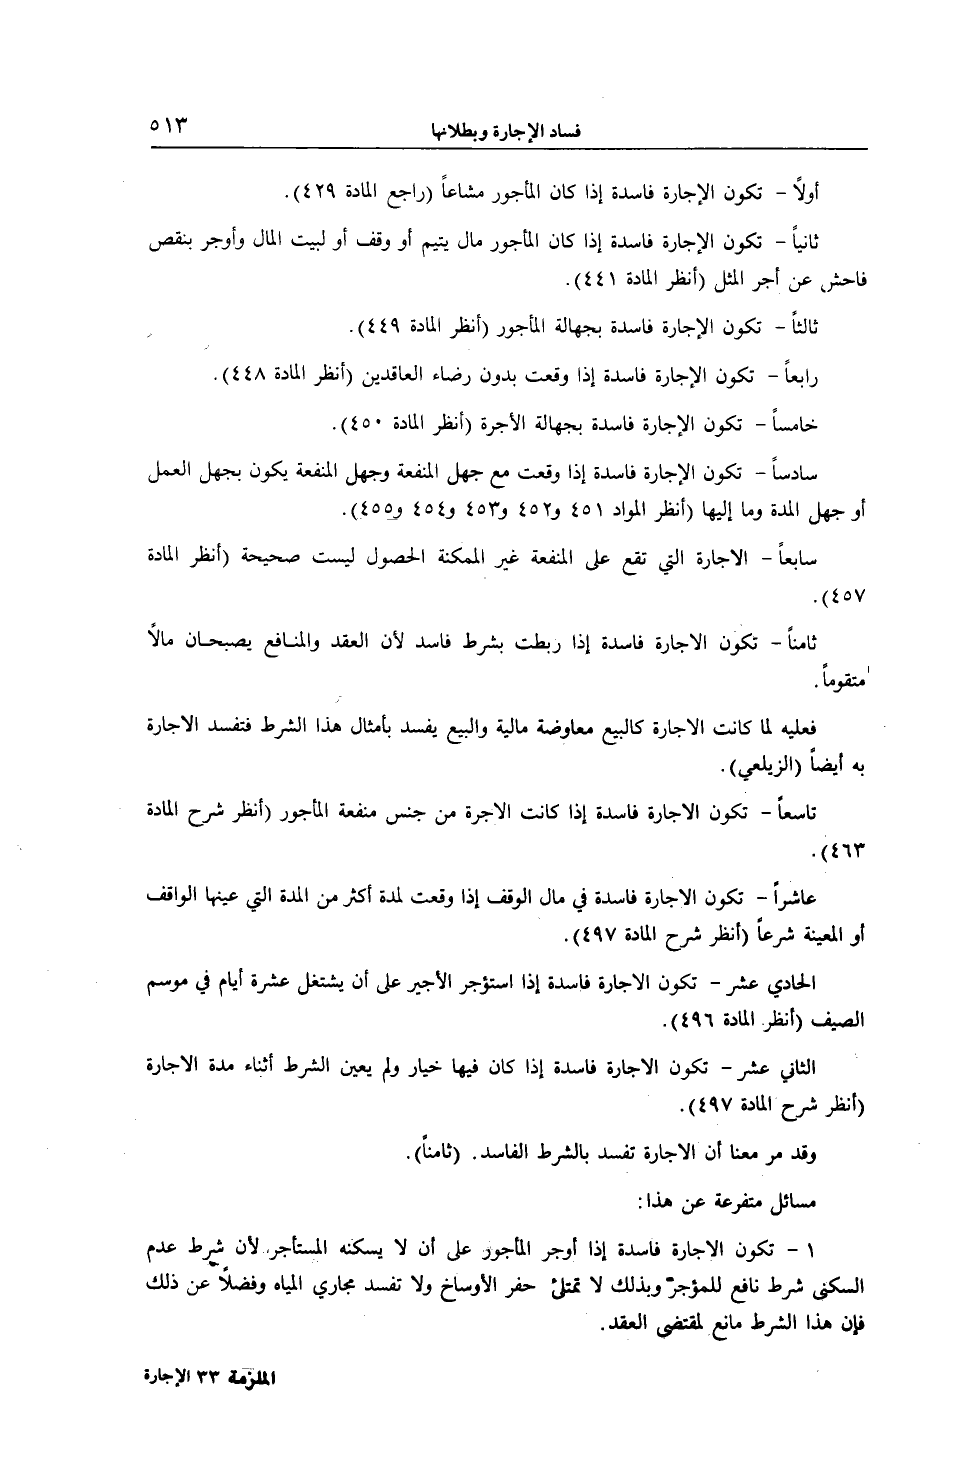 فساد الإجارة وبطلانها ٥١٣
أولاً - تكون الإجارة فاسدة إذا كان المأجور مشاعاً (راجع المادة ٤٢٩).
ثانياً - تكون الإجارة فاسدة إذا كان المأجور مال يتيم أو وقف أو لبيت المال وأوجر بنقص
فاحش عن أجر المثل (أنظر المادة ٤٤١).
ثالثاً - تكون الإجارة فاسدة بجهالة المأجور (أنظر المادة ٤٤٩).
رابعاً - تكون الإجارة فاسدة إذا وقعت بدون رضاء العاقدين (أنظر المادة ٤٤٨).
خامساً - تكون الإجارة فاسدة بجهالة الأجرة (أنظر المادة ٤٥٠).
سادساً - تكون الإجارة فاسدة إذا وقعت مع جهل المنفعة وجهل المنفعة يكون بجهل العمل
أو جهل المدة وما إليها (أنظر المواد ٤٥١ و٤٥٢ و٤٥٣ و٤٥٤ و٤٥٥).
سابعاً - الاجارة التي تقع على المنفعة غير الممكنة الحصول ليست صحيحة (أنظر المادة
٤٥٧).
ثامناً - تكون الاجارة فاسدة إذا ربطت بشرط فاسد لأن العقد والمنافع يصبحان مالاً
متقوماً.
فعليه لما كانت الاجارة كالبيع معاوضة مالية والبيع يفسد بأمثال هذا الشرط فتفسد الاجارة
به أيضاً (الزيلعي).
تاسعاً - تكون الاجارة فاسدة إذا كانت الاجرة من جنس منفعة المأجور (أنظر شرح المادة
٤٦٣).
عاشراً - تكون الاجارة فاسدة في مال الوقف إذا وقعت لمدة أكثر من المدة التي عينها الواقف
أو المعينة شرعاً (أنظر شرح المادة ٤٩٧).
الحادي عشر - تكون الاجارة فاسدة إذا استؤجر الأجير على أن يشتغل عشرة أيام في موسم
الصيف (أنظر المادة ٤٩٦).
الثاني عشر - تكون الاجارة فاسدة إذا كان فيها خيار ولم يعين الشرط أثناء مدة الاجارة
(أنظر شرح المادة ٤٩٧).
وقد مر معنا أن الاجارة تفسد بالشرط الفاسد. (ثامناً).
مسائل متفرعة عن هذا:
١ - تكون الاجارة فاسدة إذا أوجر المأجور على أن لا يسكنه المستأجر لأن شرط عدم
السكنى شرط نافع للمؤجر وبذلك لا تمتلئ حفر الأوساخ ولا تفسد مجاري المياه وفضلاً عن ذلك
فإن هذا الشرط مانع لمقتضى العقد.
الملزمة ٣٣ الإجارة